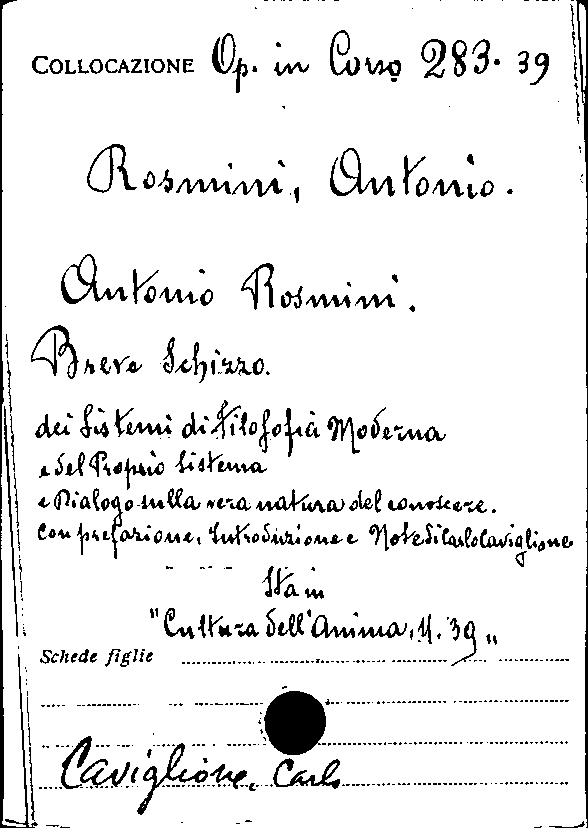 COLLOCAZIONE Op. in Corso 283. 39
Rosmini, Antonio.
Antonio Rosmini.
Breve Schizzo.
dei Sistemi di Filosofia Moderna
e del Proprio Sistema
e Dialogo sulla vera natura del conoscere.
con prefazione, Introduzione e Note di Carlo Caviglione
Sta in
"Cultura dell'Anima, N. 39„
Schede figlie
Caviglione, Carlo